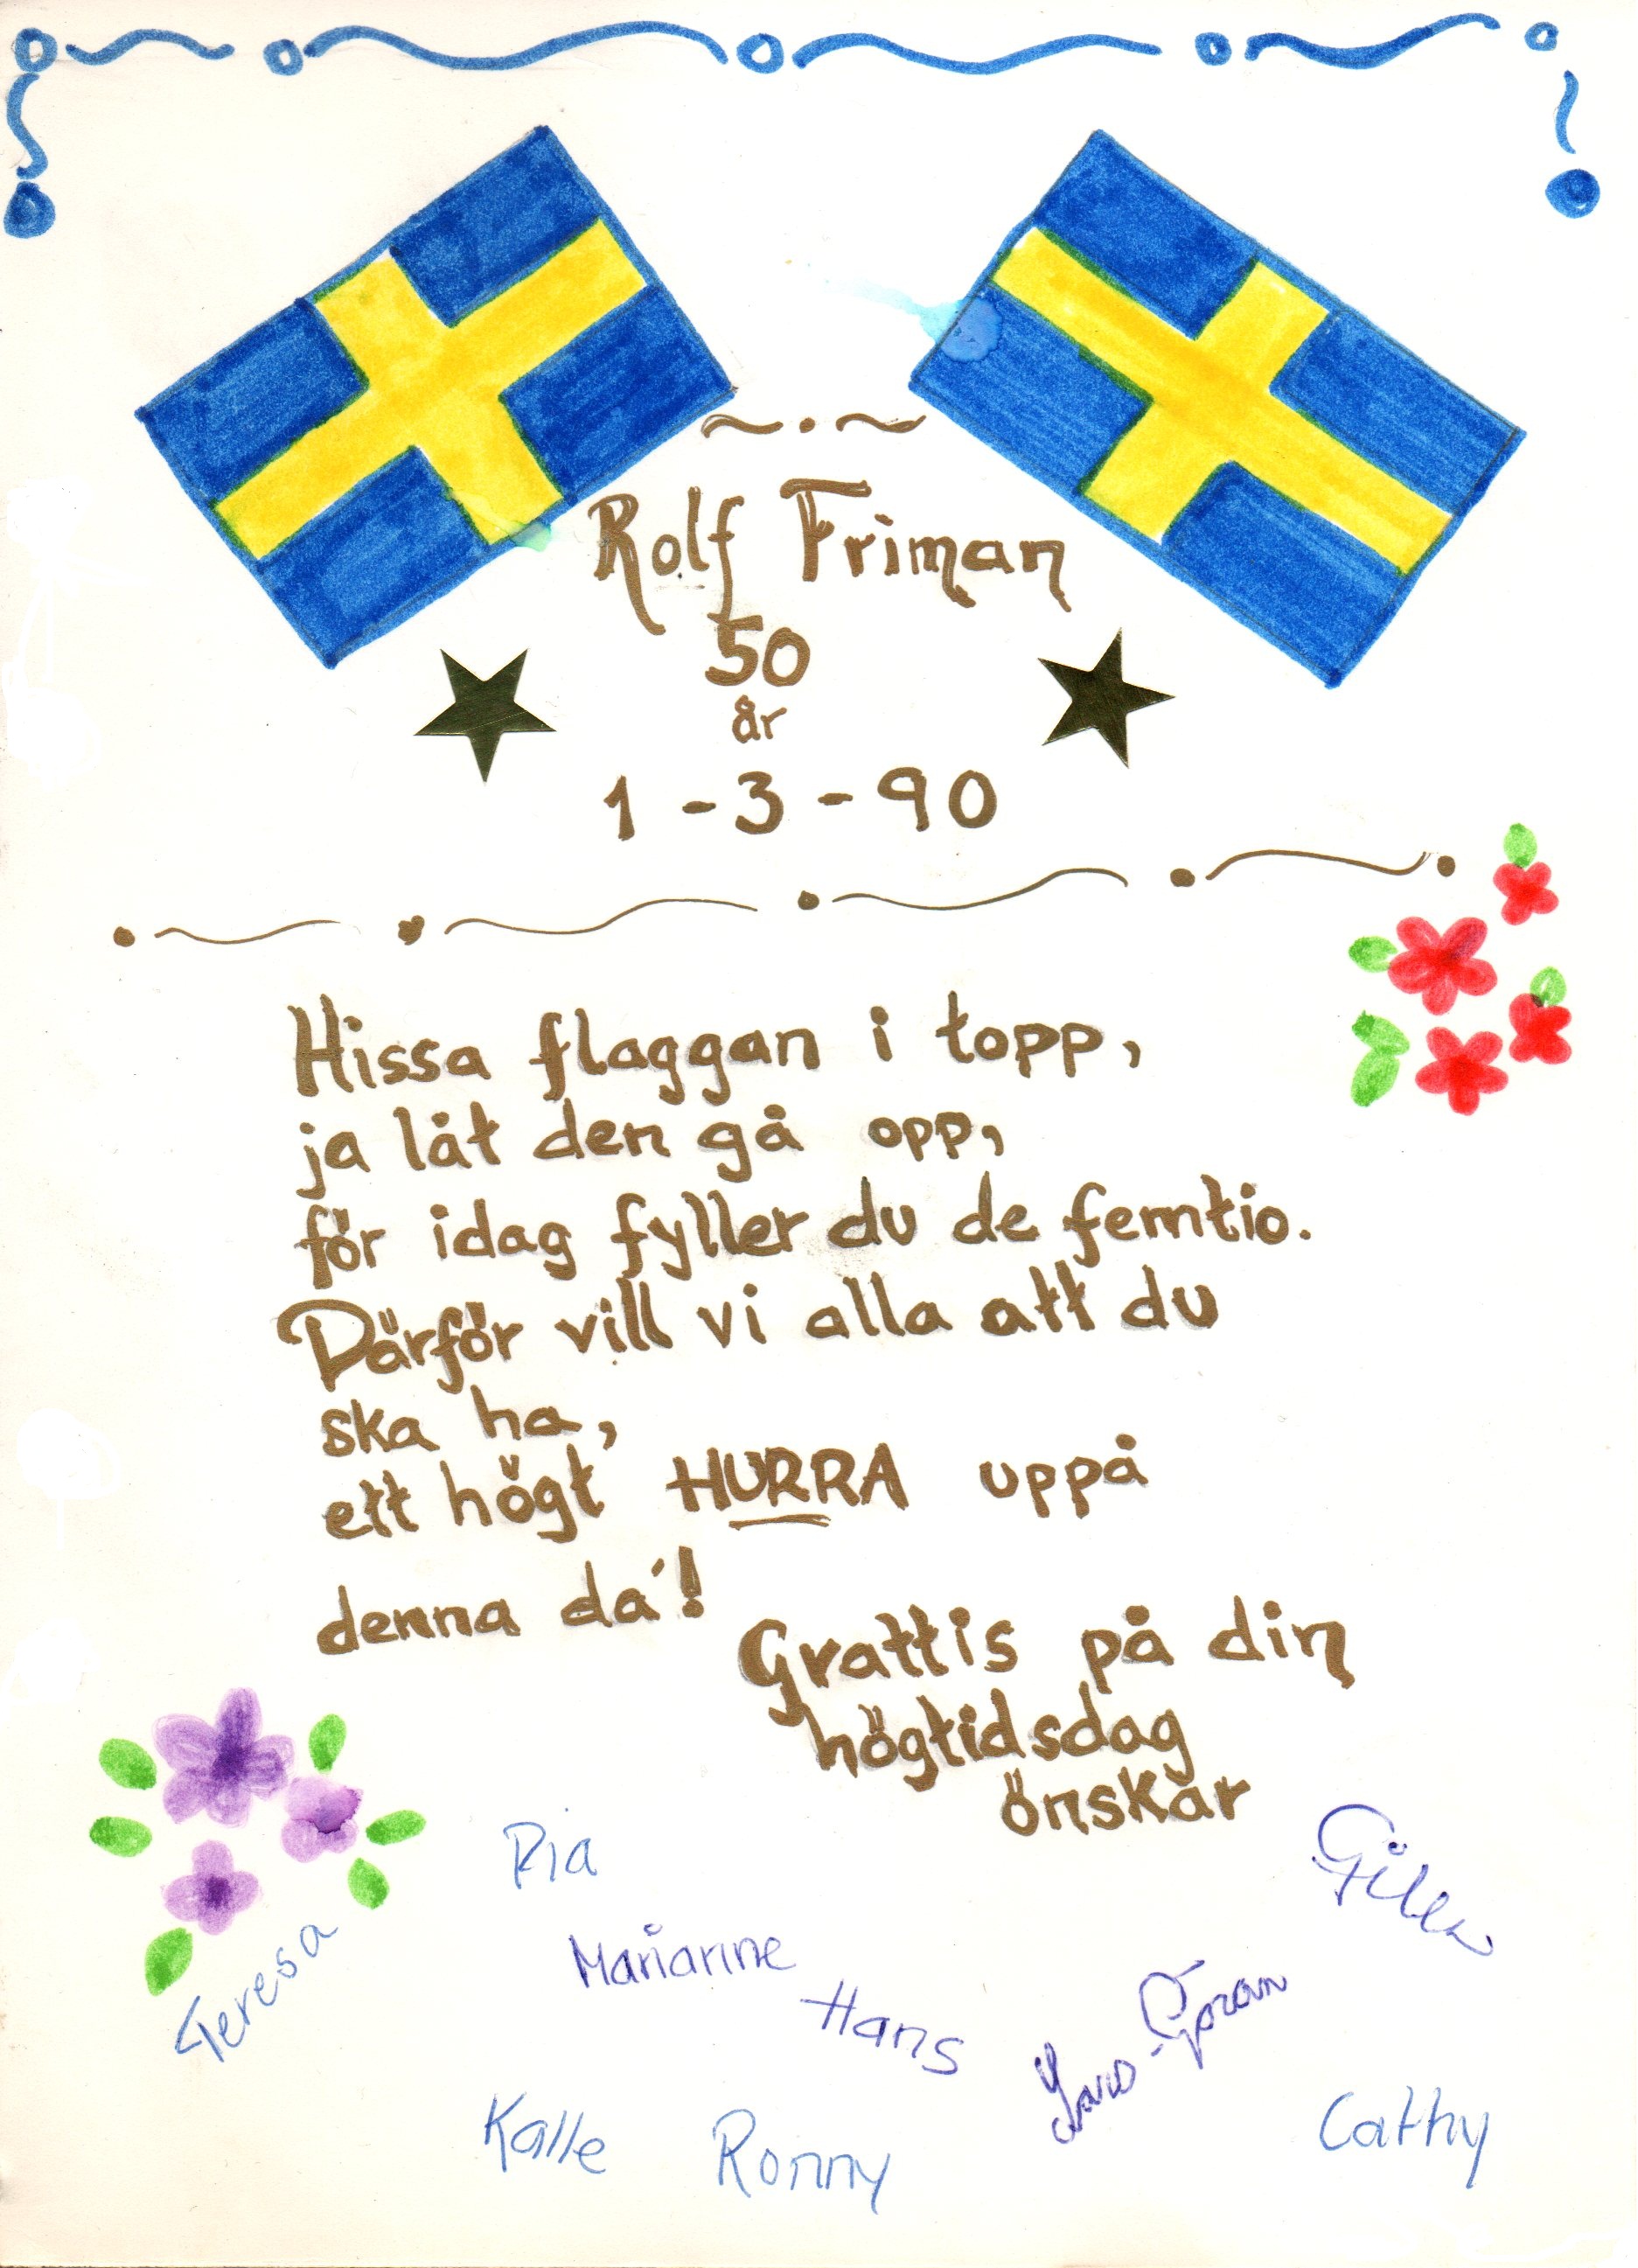 Rolf Friman
50
år
1-3-90
Hissa flaggan i topp,
ja låt den gå opp,
för idag fyller du de femtio.
Därför vill vi alla att du
ska ha,
ett högt HURRA uppå
denna da'!
Grattis på din
högtidsdag
önskar
Pia
Teresa
Marianne
Hans
Lars-Göran
Kalle
Ronny
Cathy